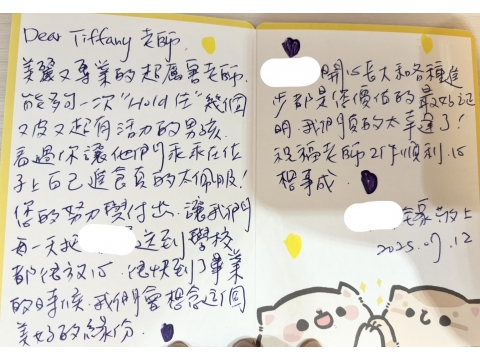 Dear Tiffany 老師.
美麗又專業的超厲害老師.
能夠一次"Hold住"幾個
又皮又超有活力的男孩.
看過你讓他們乖乖在位
子上自己進食真的太佩服!
您的努力與付出.讓我們
每一天把 送到學校
都很放心.很快到了畢業
的時候.我們會想念這個
美好的緣份.
開心長大和各種進
步都是您價值的最好證
明.我們真的太幸運了!
祝福老師 工作順利.心
想事成.
全家 上
2025.07.12